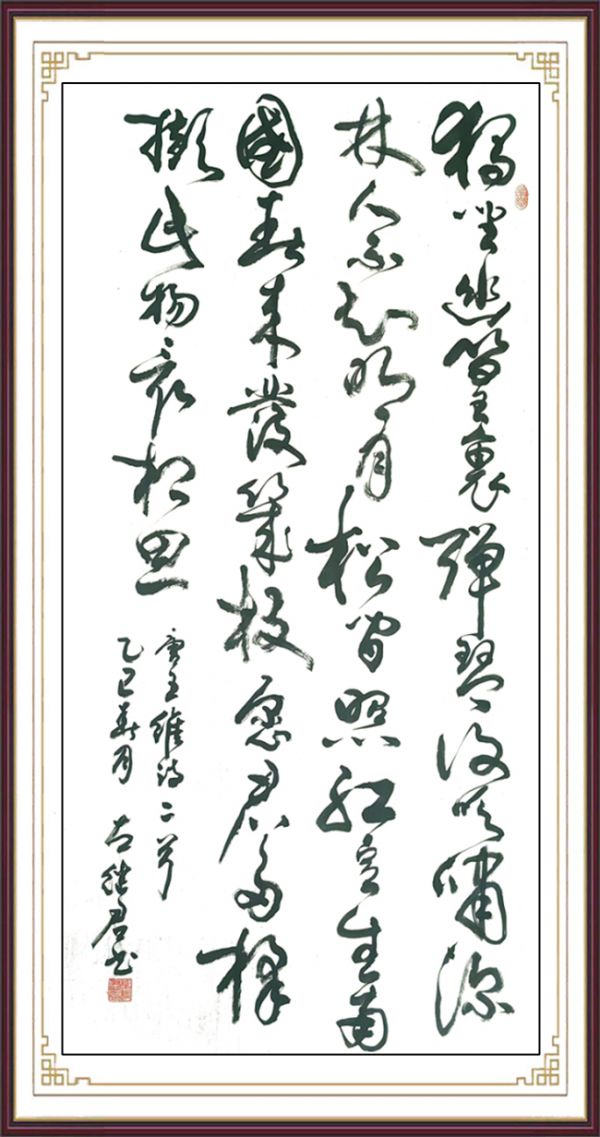 獨坐幽篁裏彈琴復長嘯深
林人不知明月松間照紅豆生南
國春來發幾枝愿君多採
擷此物最相思
唐王維詩二首
乙巳春月 继君书